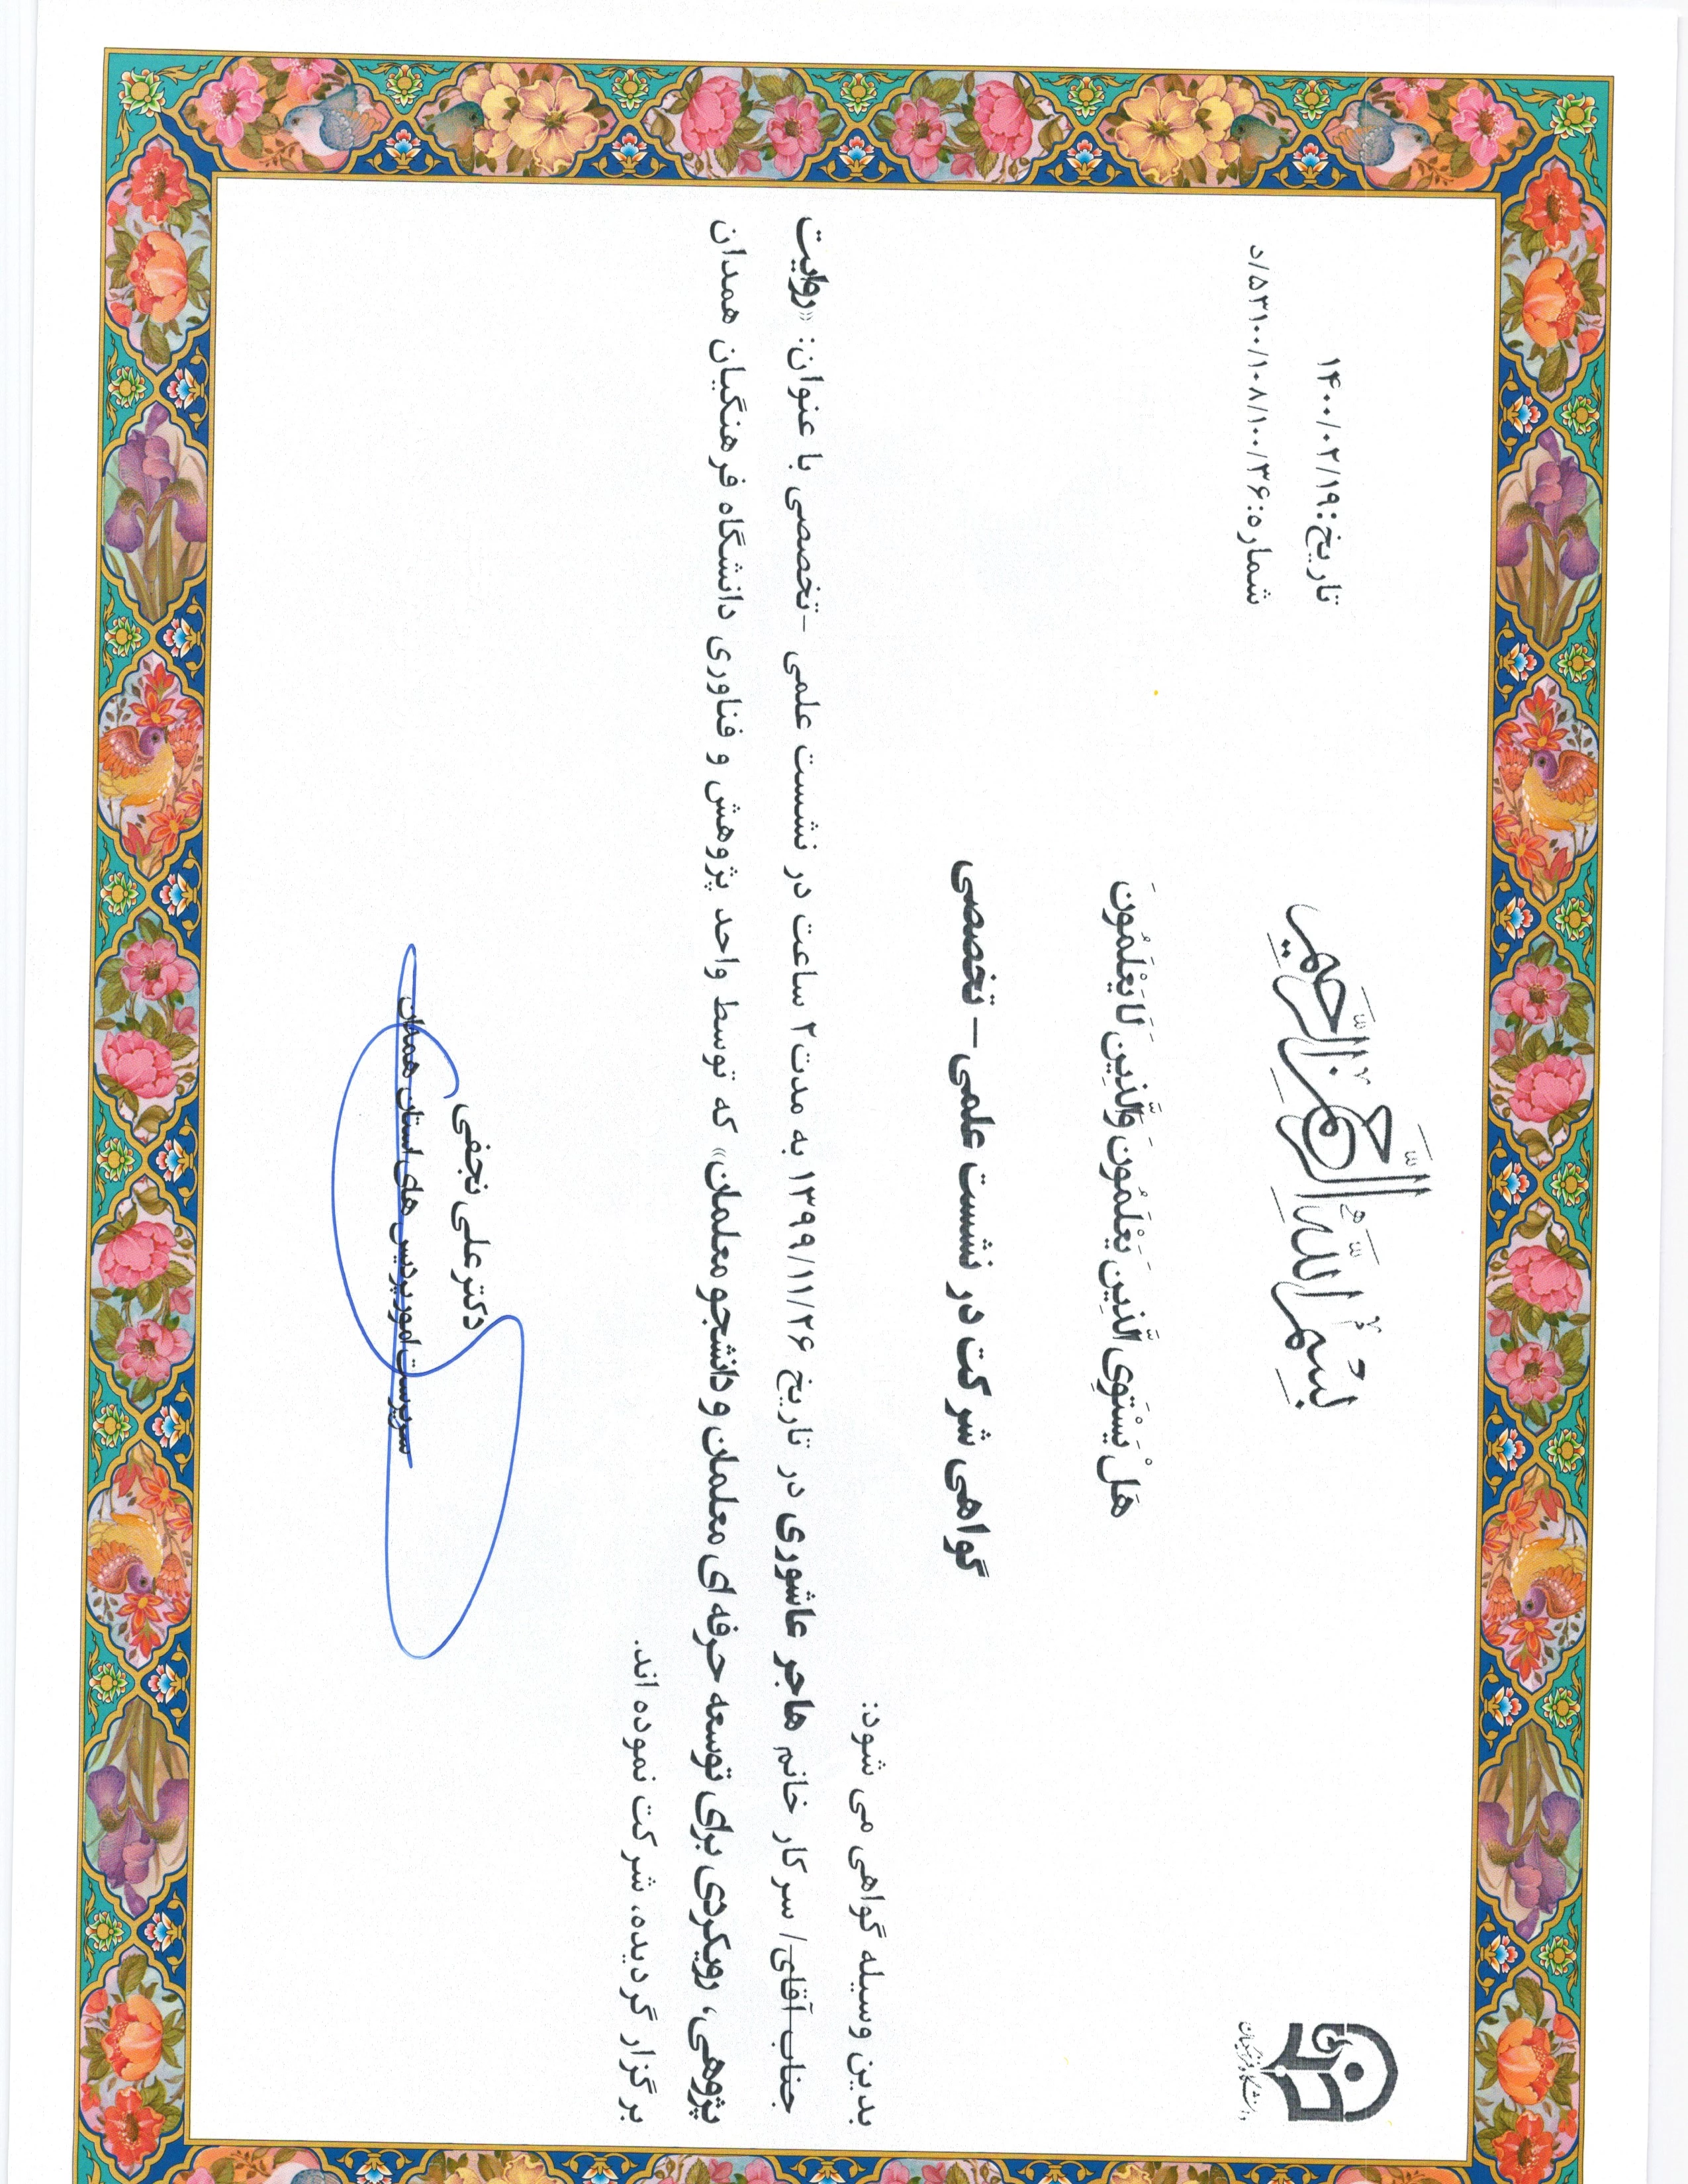 بسم الله الرحمن الرحیم
تاریخ:۱۴۰۰/۰۲/۱۹
شماره:۵۳۱۰۰/۱۰۸/۱۰۰/۳۶/د
دانشگاه فرهنگیان
هَلْ یَسْتَوِی الَّذِینَ یَعْلَمُونَ وَالَّذِینَ لَا یَعْلَمُونَ
گواهی شرکت در نشست علمی – تخصصی
بدین وسیله گواهی می شود:
جناب آقای/ سرکار خانم هاجر عاشوری در تاریخ ۱۳۹۹/۱۱/۲۶ به مدت ۲ ساعت در نشست علمی -تخصصی با عنوان: «روایت
پژوهی، رویکردی برای توسعه حرفه ای معلمان و دانشجو معلمان» که توسط واحد پژوهش و فناوری دانشگاه فرهنگیان همدان
برگزار گردیده، شرکت نموده اند.
دکتر علی نجفی
سرپرست امور پردیس های استان همدان